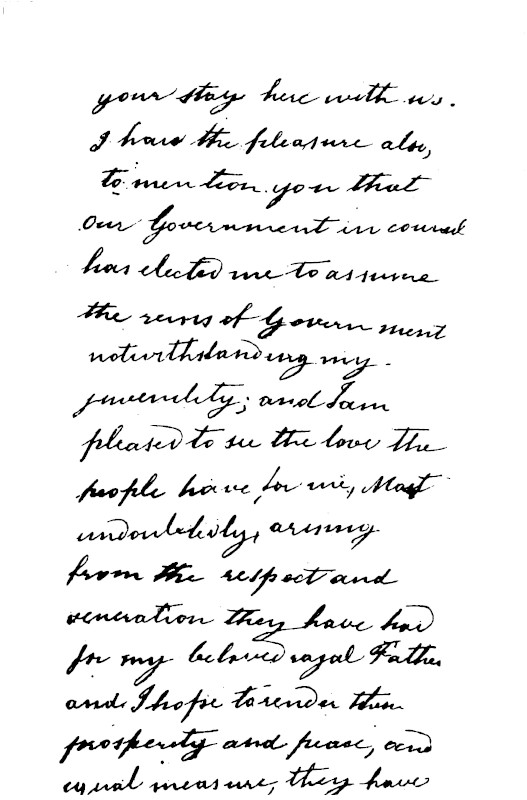 your stay here with us.
I have the pleasure also,
to mention you that
our Government in council
has elected me to assume
the reins of Government
notwithstanding my
juvenility; and I am
pleased to see the love the
people have for me, Most
undoubtedly, arising
from the respect and
veneration they have had
for my beloved royal Father
and I hope to render them
prosperity and peace, and
equal measure, they have